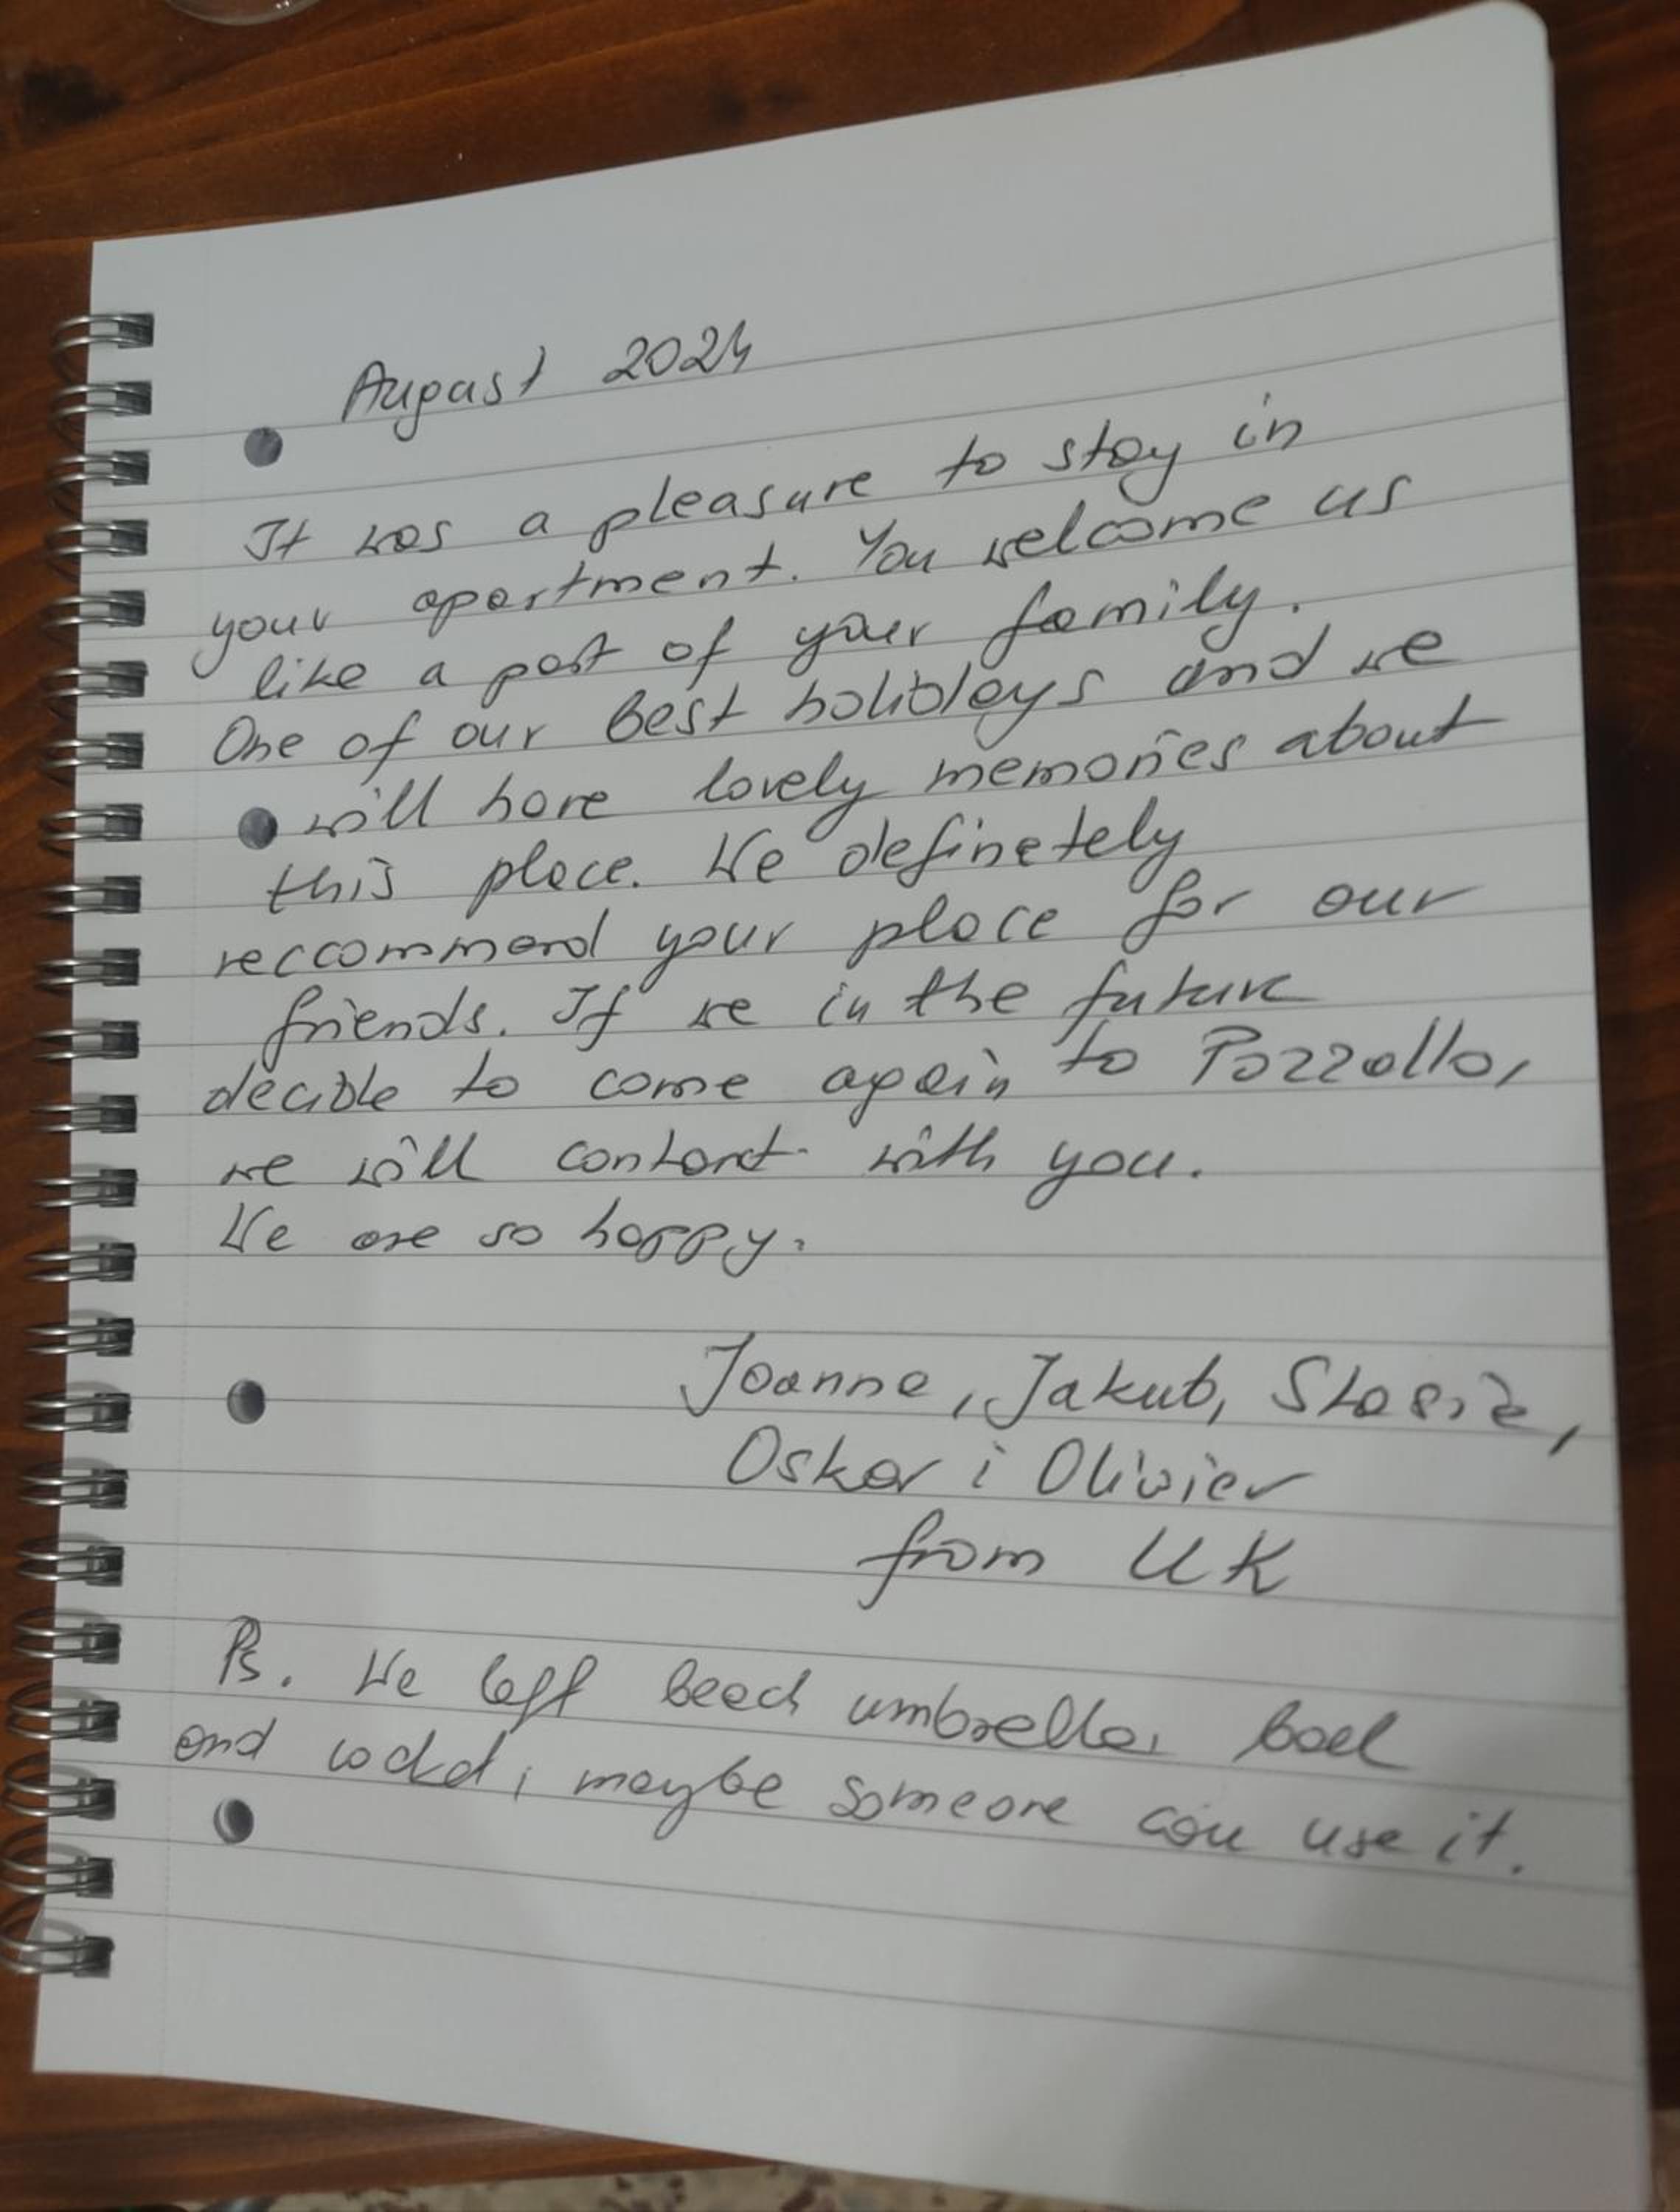 August 2024
It was a pleasure to stay in
your apartment. You welcome us
like a part of your family.
One of our best holidays and we
will have lovely memories about
this place. We definetely
reccommend your place for our
friends. If we in the future
decide to come again to Pozzallo,
we will contact with you.
We are so happy.
Joanna, Jakub, Stasia,
Oskar i Olivier
from UK
Ps. We left beach umbrella, ball
and , maybe someone can use it.